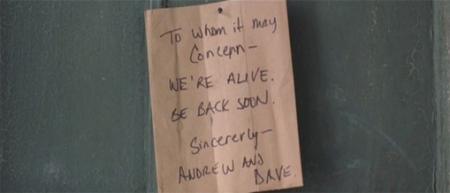 To whom it may
Concern—
WE'RE ALIVE.
BE BACK SOON.
Sincererly—
ANDREW AND
DAVE.